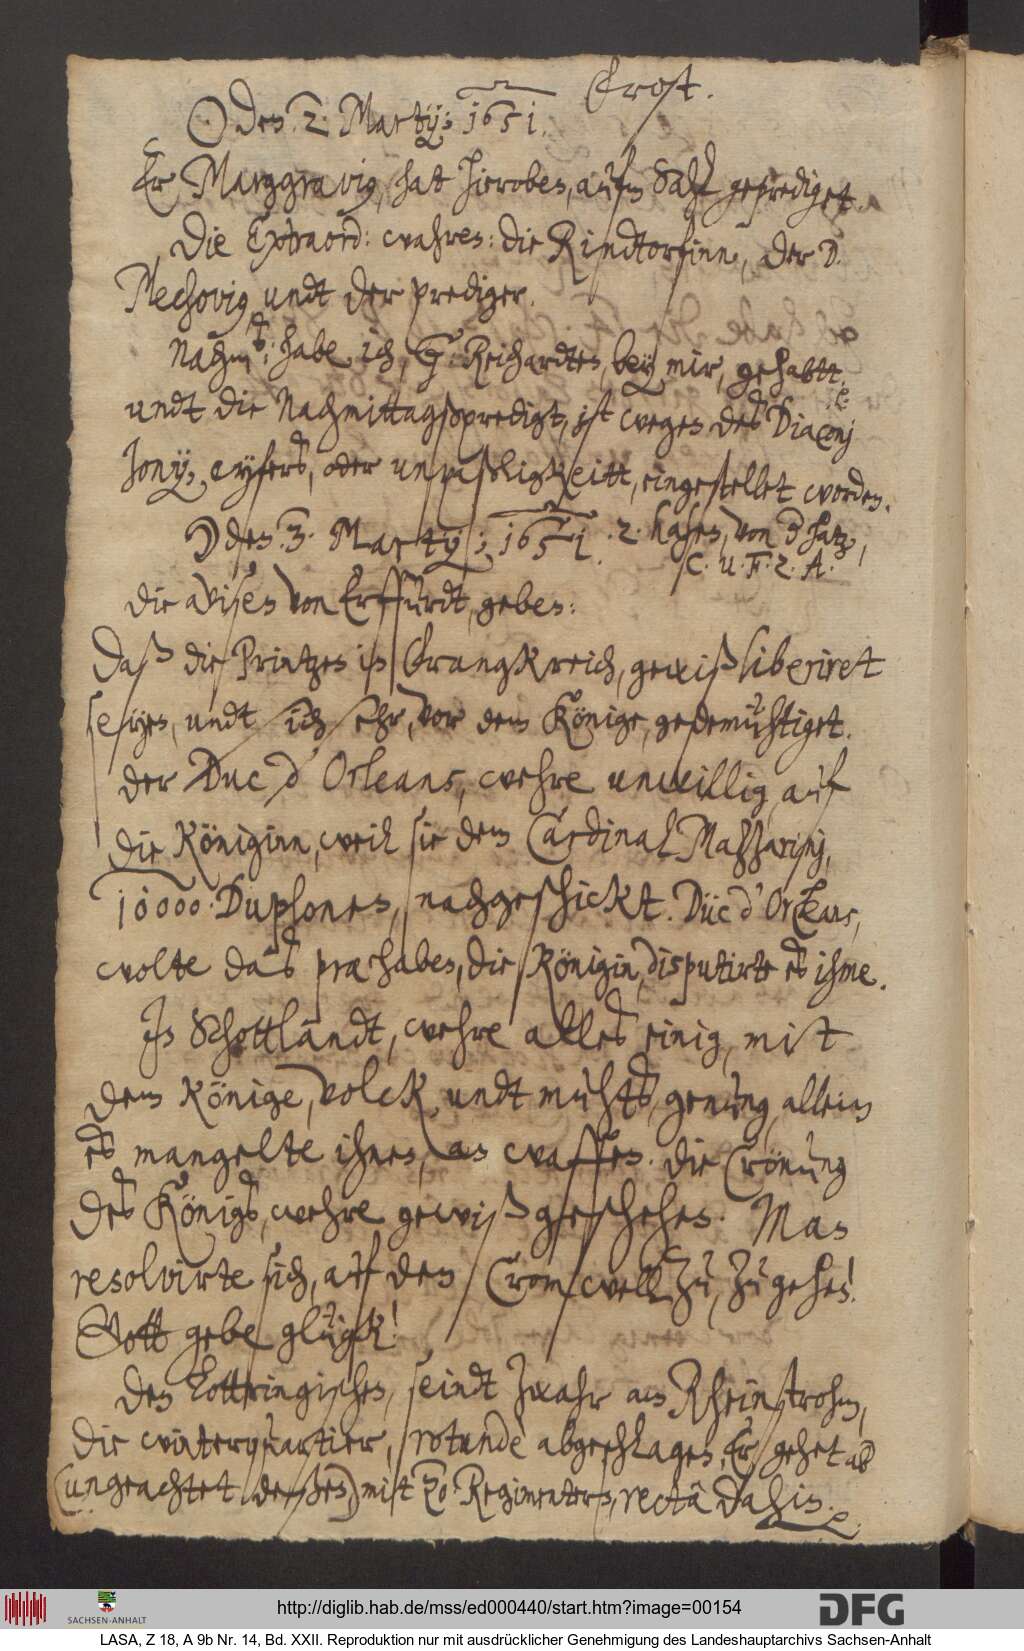 ☉ den 2. Martij; 1651. Frost.
Er Marggravig, hat hieroben, aufm Sahl geprediget.
Die Extraord: wahren: die Rindtorfinn, der D.
Mechovig undt der prediger.
Nachm: habe ich, G: Reichardten, bey mir, gehabtt.
undt die Nachmittagßpredigt, ist wegen des Diaconj
Jonij, eyfers, oder unpäßligkeitt, eingestellet worden.
☽ den 3. Martij; 1651. 2. hasen, von
Die avisen von Erffurdt, geben:
Daß die Printzen in Franckreich, gewiß liberiret
seyen, undt sich sehr, vor dem Könige, gedemühtiget.
der Duc d'Orleans, wehre unwillig auf
die Königinn, weil sie dem Cardinal Mazzarinj,
10000 Duplonen, nachgeschickt. Düc d'Orleans,
wolte das prae haben, die Königin, disputirte es ihme.
In Schottlandt, wehre alles einig, mitt
dem Könige, volck, undt muhts, genung, allein
es mangelte ihnen, an waffen. die Crönung
des Königs, wehre gewiß geschehen. Man
resolvirte sich, auf den Cromwell zu, zu gehen!
Gott gebe glügk!
Den Lottringischen, seindt zwahr am Rheinstrohm,
die winterquartier, rotundè abgeschlagen, Er gehet ab
(ungeachtet deßen) mitt Regimentern, rectà dahin. e.
http://diglib.hab.de/mss/ed000440/start.htm?image=00154
SACHSEN-ANHALT
DFG
LASA, Z 18, A 9b Nr. 14, Bd. XXII. Reproduktion nur mit ausdrücklicher Genehmigung des Landeshauptarchivs Sachsen-Anhalt